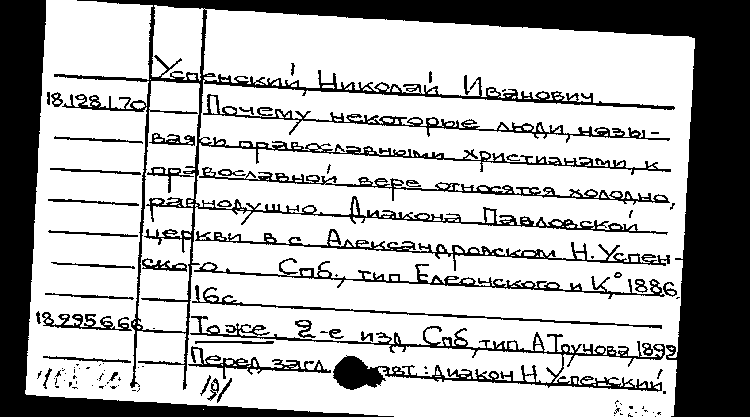 Успенский, Николай Иванович.
18.128.1.70 Почему некоторые люди, назы-
ваясь православными христианами, к
православной вере относятся холодно,
равнодушно. Диакона Павловской
церкви в с. Александровском Н. Успен-
ского. Спб., тип. Елеонского и К°, 1886.
16 с.
18.295.6.66 То же. 2-е изд. Спб., тип. А. Трунова, 1899
Перед загл. авт.: диакон Н. Успенский.